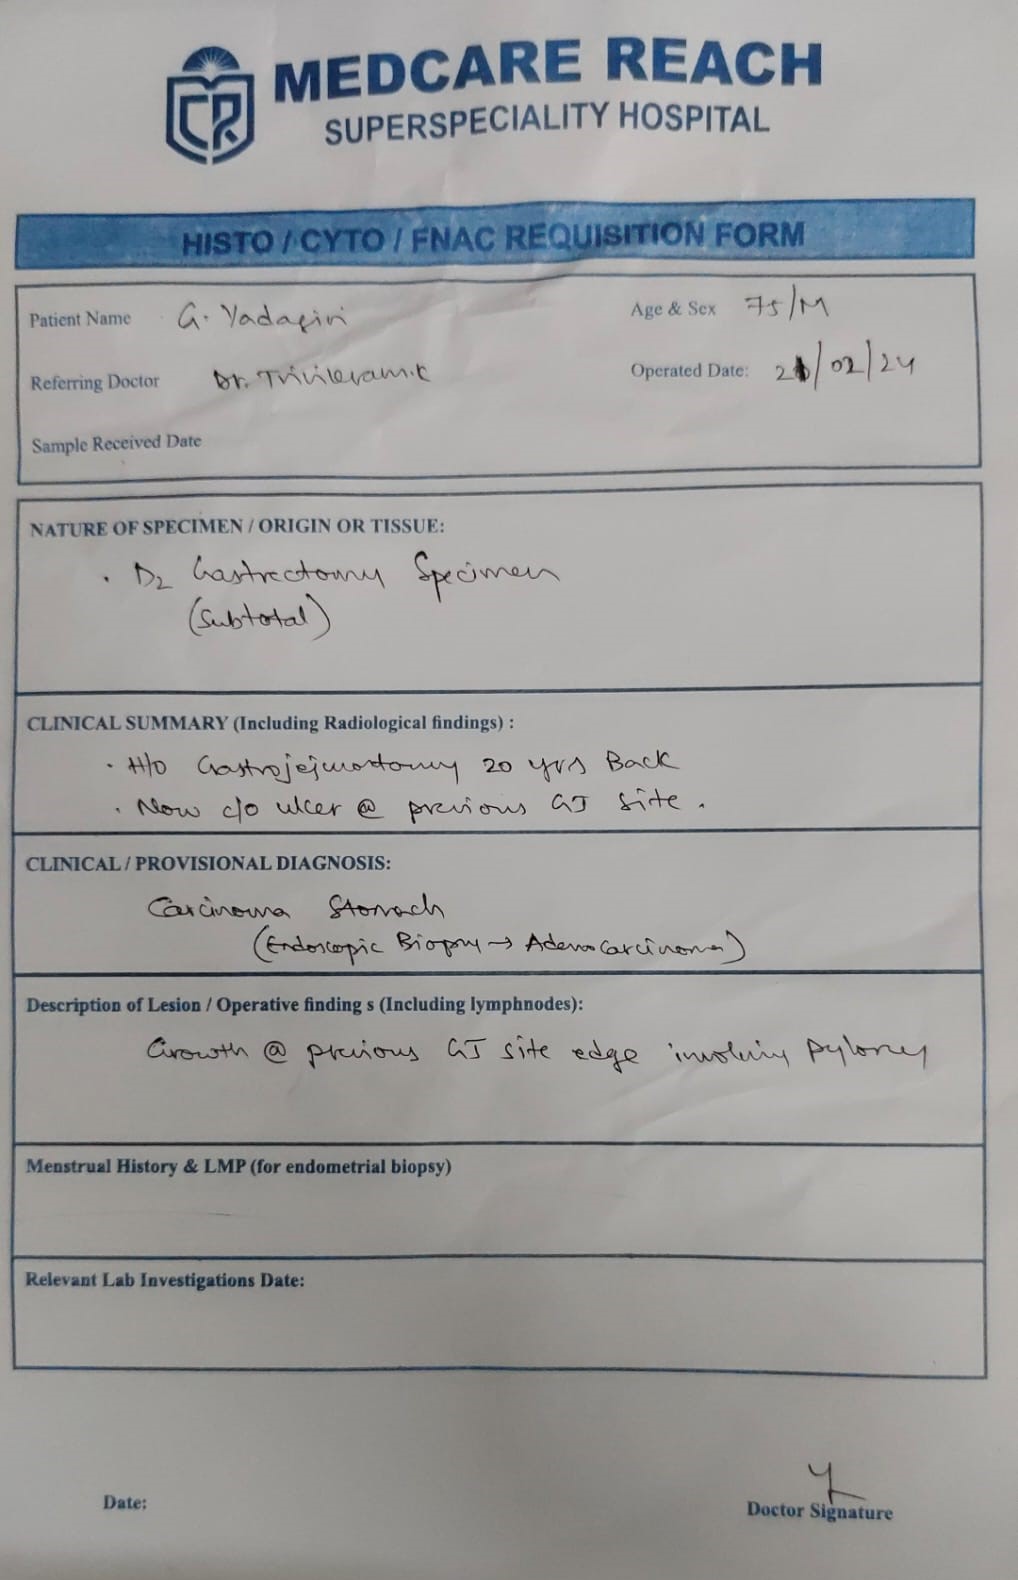 MEDCARE REACH
SUPERSPECIALITY HOSPITAL
HISTO / CYTO / FNAC REQUISITION FORM
Patient Name G. Yadagiri Age & Sex 75/M
Referring Doctor Dr. Trivikram.K Operated Date: 21/02/24
Sample Received Date
NATURE OF SPECIMEN / ORIGIN OR TISSUE:
• D2 Gastrectomy Specimen
(Subtotal)
CLINICAL SUMMARY (Including Radiological findings) :
• H/O Gastrojejunostomy 20 yrs Back
• Now c/o ulcer @ previous GJ site.
CLINICAL / PROVISIONAL DIAGNOSIS:
Carcinoma Stomach
(Endoscopic Biopsy → Adenocarcinoma)
Description of Lesion / Operative finding s (Including lymphnodes):
Growth @ previous GJ site edge involving pylorus
Menstrual History & LMP (for endometrial biopsy)
Relevant Lab Investigations Date:
Date:
Doctor Signature